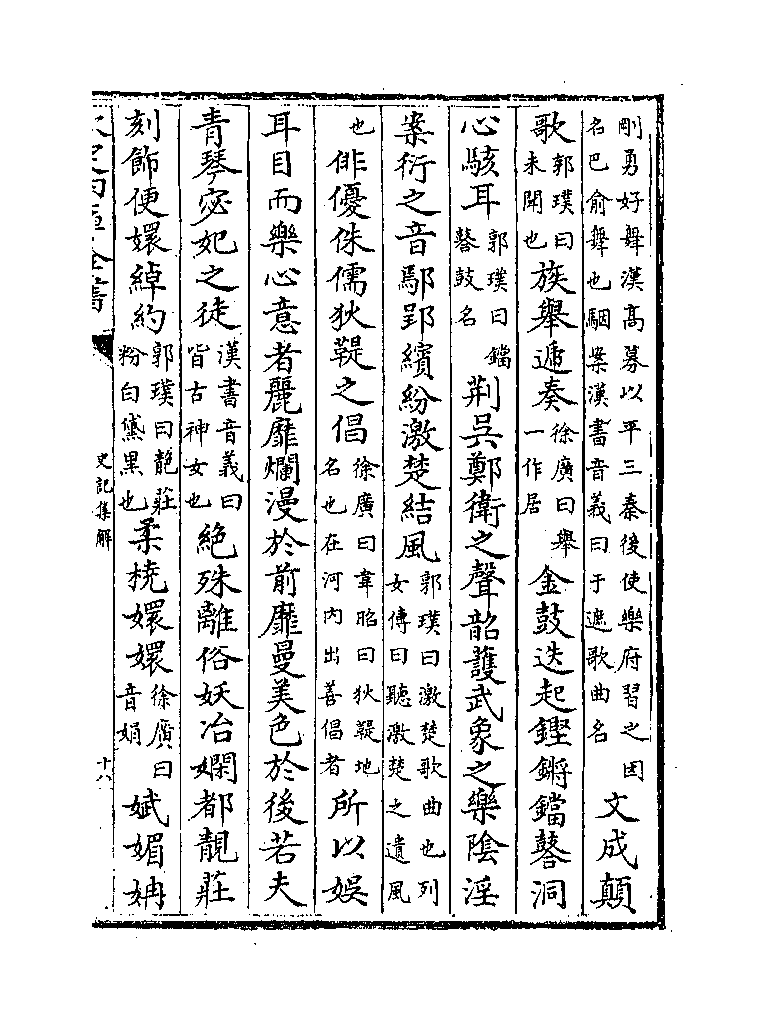 剛勇好舞漢髙募以平三秦後使樂府習之因名巴俞舞也駰案漢書音義曰于遮歌曲名文成顛
歌郭璞曰未聞也族舉遞奏徐廣曰舉一作居金鼓迭起鏗鏘鐺鼛洞
心駭耳郭璞曰鐺鼛鼓名荆吳鄭衛之聲韶頀武象之樂陰淫
案衍之音鄢郢繽紛激楚結風郭璞曰激楚歌曲也列女傳曰聽激楚之遺風
也俳優侏儒狄鞮之倡徐廣曰韋昭曰狄鞮地名也在河内出善倡者所以娛
耳目而樂心意者麗靡爛漫於前靡曼美色於後若夫
青琴宓妃之徒漢書音義曰皆古神女也絶殊離俗妖冶嫻都靚莊
刻飾便嬛綽約郭璞曰靚莊粉白黛黒也柔橈嬛嬛徐廣曰音娟娬媚姌
史記集解
十八